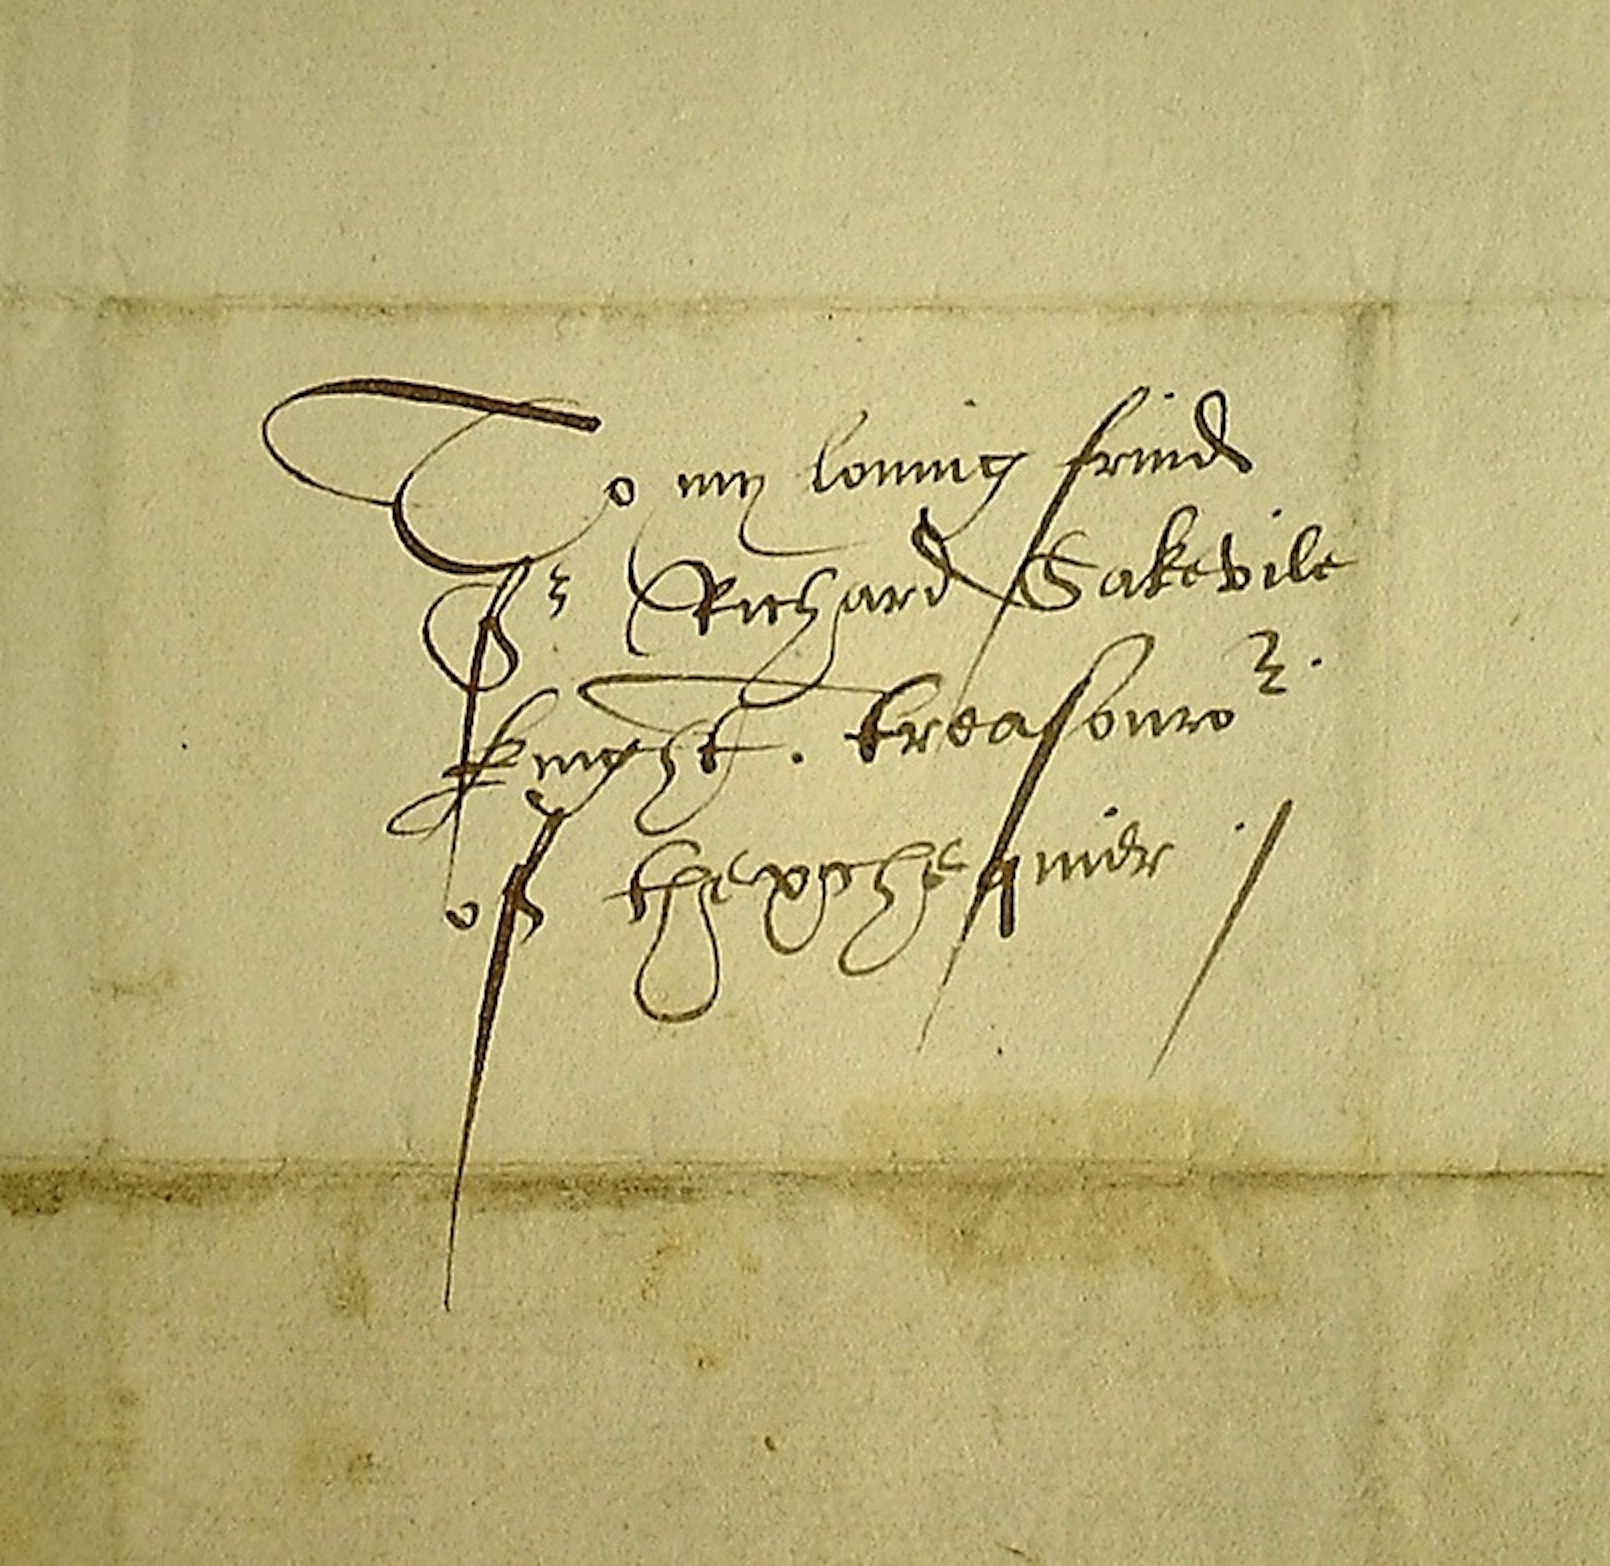 To my loving frind
Sr Richard Sakevile
knyght. treasourer.
of thexchequier /